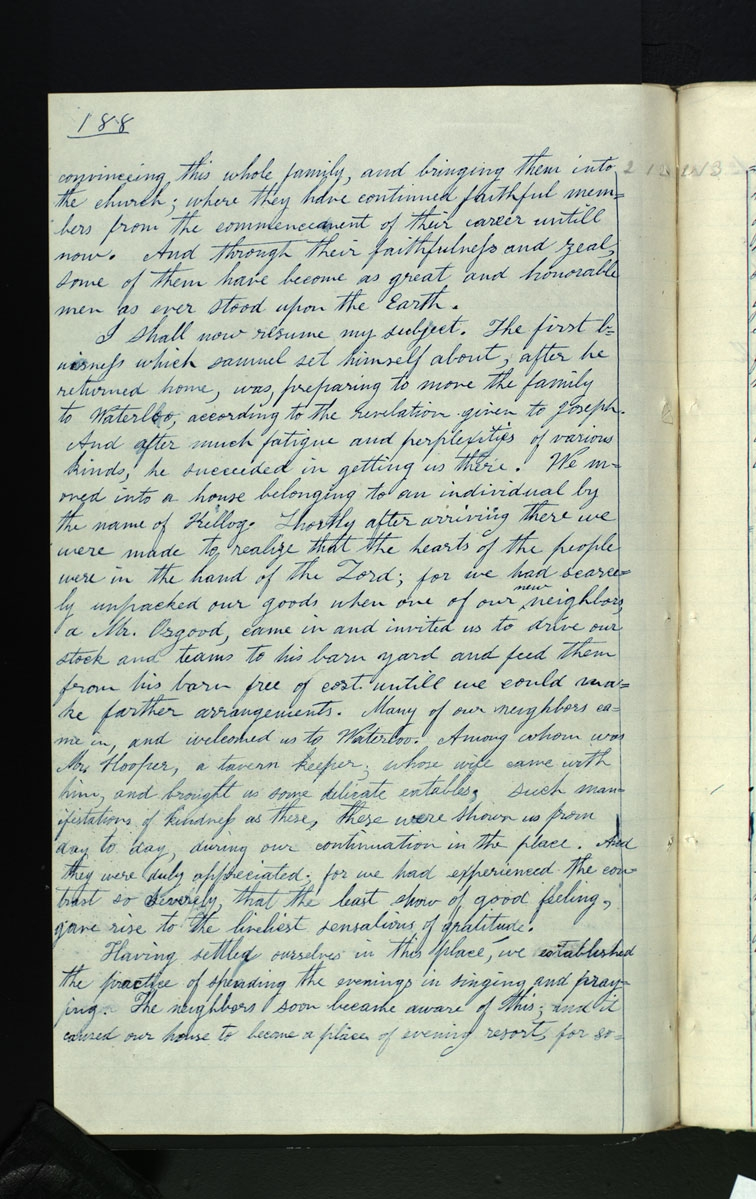 188
convinceing this whole family, and bringing them into
the church; where they have continued faithful mem=
bers from the commencement of their career untill
now. And through their faithfulness and zeal,
some of them have become as great and honorable
men as ever stood upon the Earth.
I shall now resume my subject. The first b=
uisness which samuel set himself about, after he
returned home, was, preparing to move the family
to Waterloo, according to the revelation given to Joseph.
And after much fatigue and perplexities of various
kinds, he succeeded in getting us there. We m=
oved into a house belonging to an individual by
the name of Kellog. Shortly after arriving there we
were made to realize that the hearts of the people
were in the hand of the Lord; for we had scarce=
ly unpacked our goods when one of our new neighbors,
a Mr. Osgood, came in and invited us to drive our
stock and teams to his barn yard and feed them
from his barn free of cost untill we could ma=
ke farther arrangements. Many of our neighbors ca=
me in, and welcomed us to Waterloo. Among whom was
Mr. Hooper, a tavern keeper; whose wife came with
him, and brought us some delicate eatables; such man=
ifestations of kindness as these, these were shown us from
day to day, during our continuation in the place. And
they were duly appreciated. for we had experienced the con=
trast so severely, that the least show of good feeling,
gave rise to the liveliest sensations of gratitude.
Having settled ourselves in this place, we established
the practice of spending the evenings in singing and pray=
ing. The neighbors soon became aware of this; and it
caused our house to became a place of evening resort, for so=